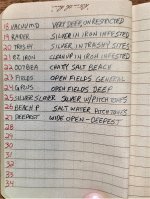 18 VACUUMD VERY DEEP, UNRESTRICTED
19 RAIDER SILVER IN IRON INFESTED
20 TRISHY SILVER IN TRASHY SITES
21 IRON CLEANUP IN IRON INFESTED
22 OUTBEA CHATTY SALT BEACH
23 FIELDS OPEN FIELDS GENERAL
24 GPLUS OPEN FIELDS DEEP
25 SILVER SLAYER SILVER W/ PITCH TONES
26 BEACH P SALT WATER PITCH TONES
27 DEEPEST WIDE OPEN - DEEPEST
28
29
30
31
32
33
34